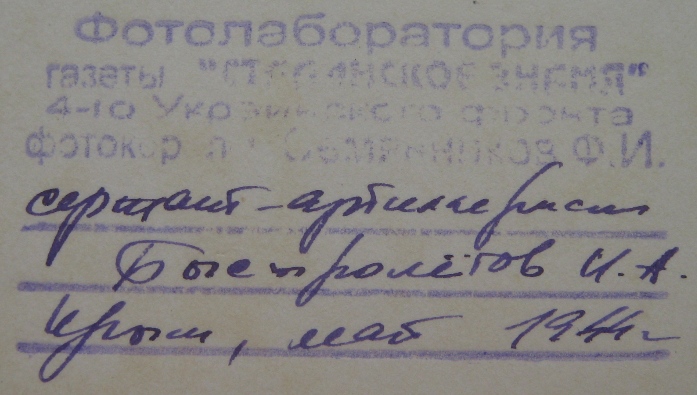 Фотолаборатория
газеты "СТАЛИНСКОЕ ЗНАМЯ"
4-го Украинского фронта
фотокор Ф.И.
сержант-артиллерист
Быстролётов И.А.
Крым, май 1944г